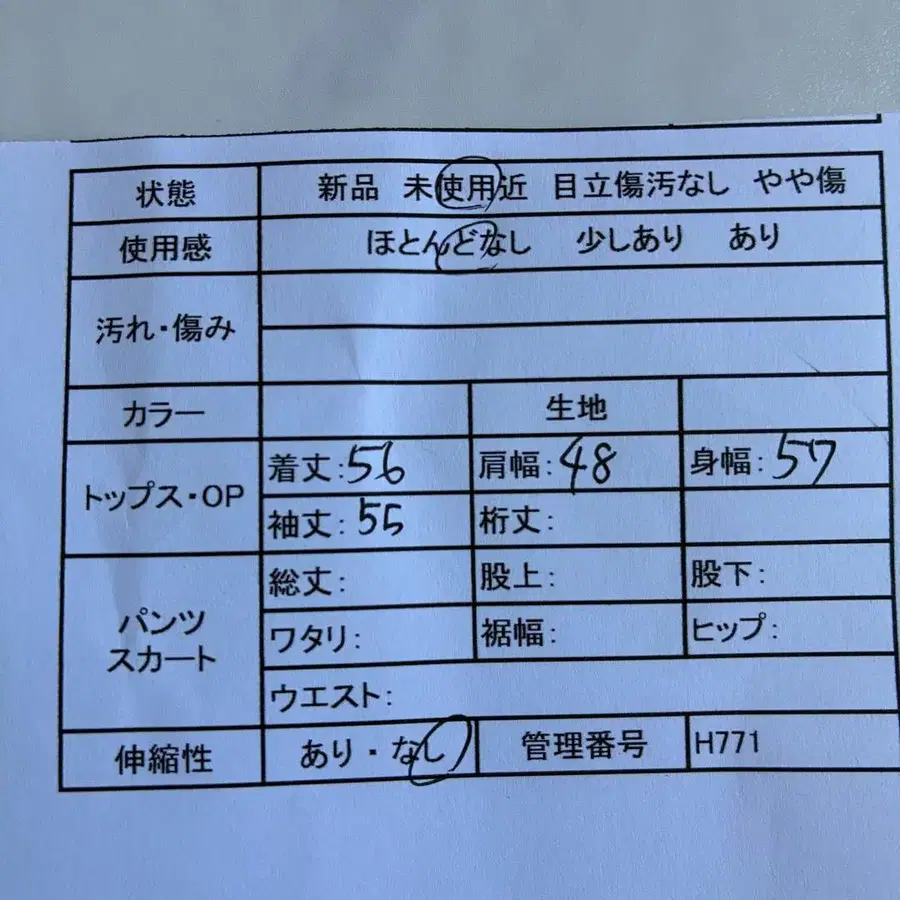 状態 新品 未使用近 目立傷汚なし やや傷
使用感 ほとんどなし 少しあり あり
汚れ・傷み
カラー 生地
トップス・OP
着丈:56 肩幅:48 身幅:57
袖丈:55 裄丈:
パンツ
スカート
総丈: 股上: 股下:
ワタリ: 裾幅: ヒップ:
ウエスト:
伸縮性 あり・なし 管理番号 H771